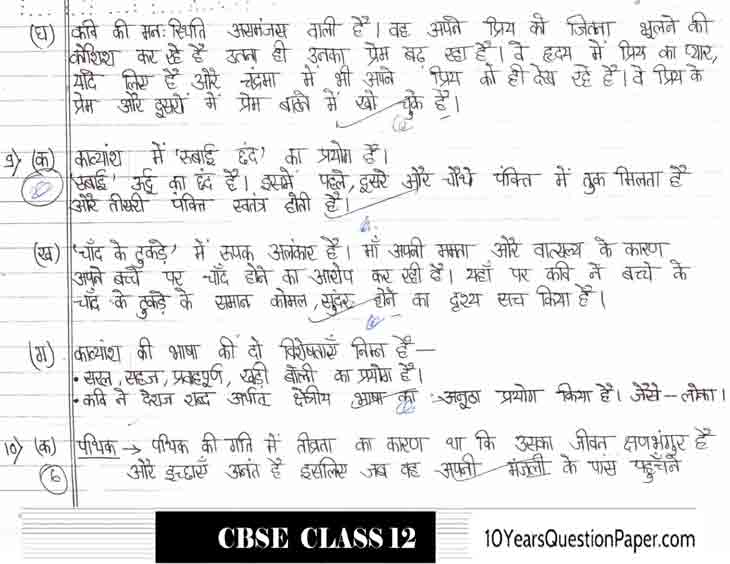 (घ) कवि की मनः स्थिति असमंजस वाली है। वह अपने प्रिय को जितना भूलने की
कोशिश कर रहे है उतना ही उनका प्रेम बढ़ रहा है। वे हृदय में प्रिय का प्यार,
यादें लिए है और चंद्रमा में भी अपने प्रिय को ही देख रहे है। वे प्रिय के
प्रेम और दूसरों में प्रेम बाटने में खो चुके है।
9) (क) काव्यांश में 'रुबाई छंद' का प्रयोग है।
'रुबाई' उर्दू का छंद है। इसमें पहले, दूसरे और चौथे पंक्ति में तुक मिलता है
और तीसरी पंक्ति स्वतंत्र होती है।
(ख) 'चाँद के टुकड़े' में रूपक अलंकार है। माँ अपनी ममता और वात्सल्य के कारण
अपने बच्चे पर चाँद होने का आरोप कर रही है। यहाँ पर कवि ने बच्चे के
चाँद के टुकड़े के समान कोमल, सुंदर होने का दृश्य सच किया है।
(ग) काव्यांश की भाषा की दो विशेषताएँ निम्न है —
• सरल, सहज, प्रवाहपूर्ण, खड़ी बोली का प्रयोग है।
• कवि ने देशज शब्द अर्थात् क्षेत्रीय भाषा का अनूठा प्रयोग किया है। जैसे - लोका।
10) (क) पथिक → पथिक की गति में तीव्रता का कारण था कि उसका जीवन क्षणभंगुर है
6 और इच्छाएँ अनंत है इसलिए जब वह अपनी मंजली के पास पहुँचने
CBSE CLASS 12
10YearsQuestionPaper.com